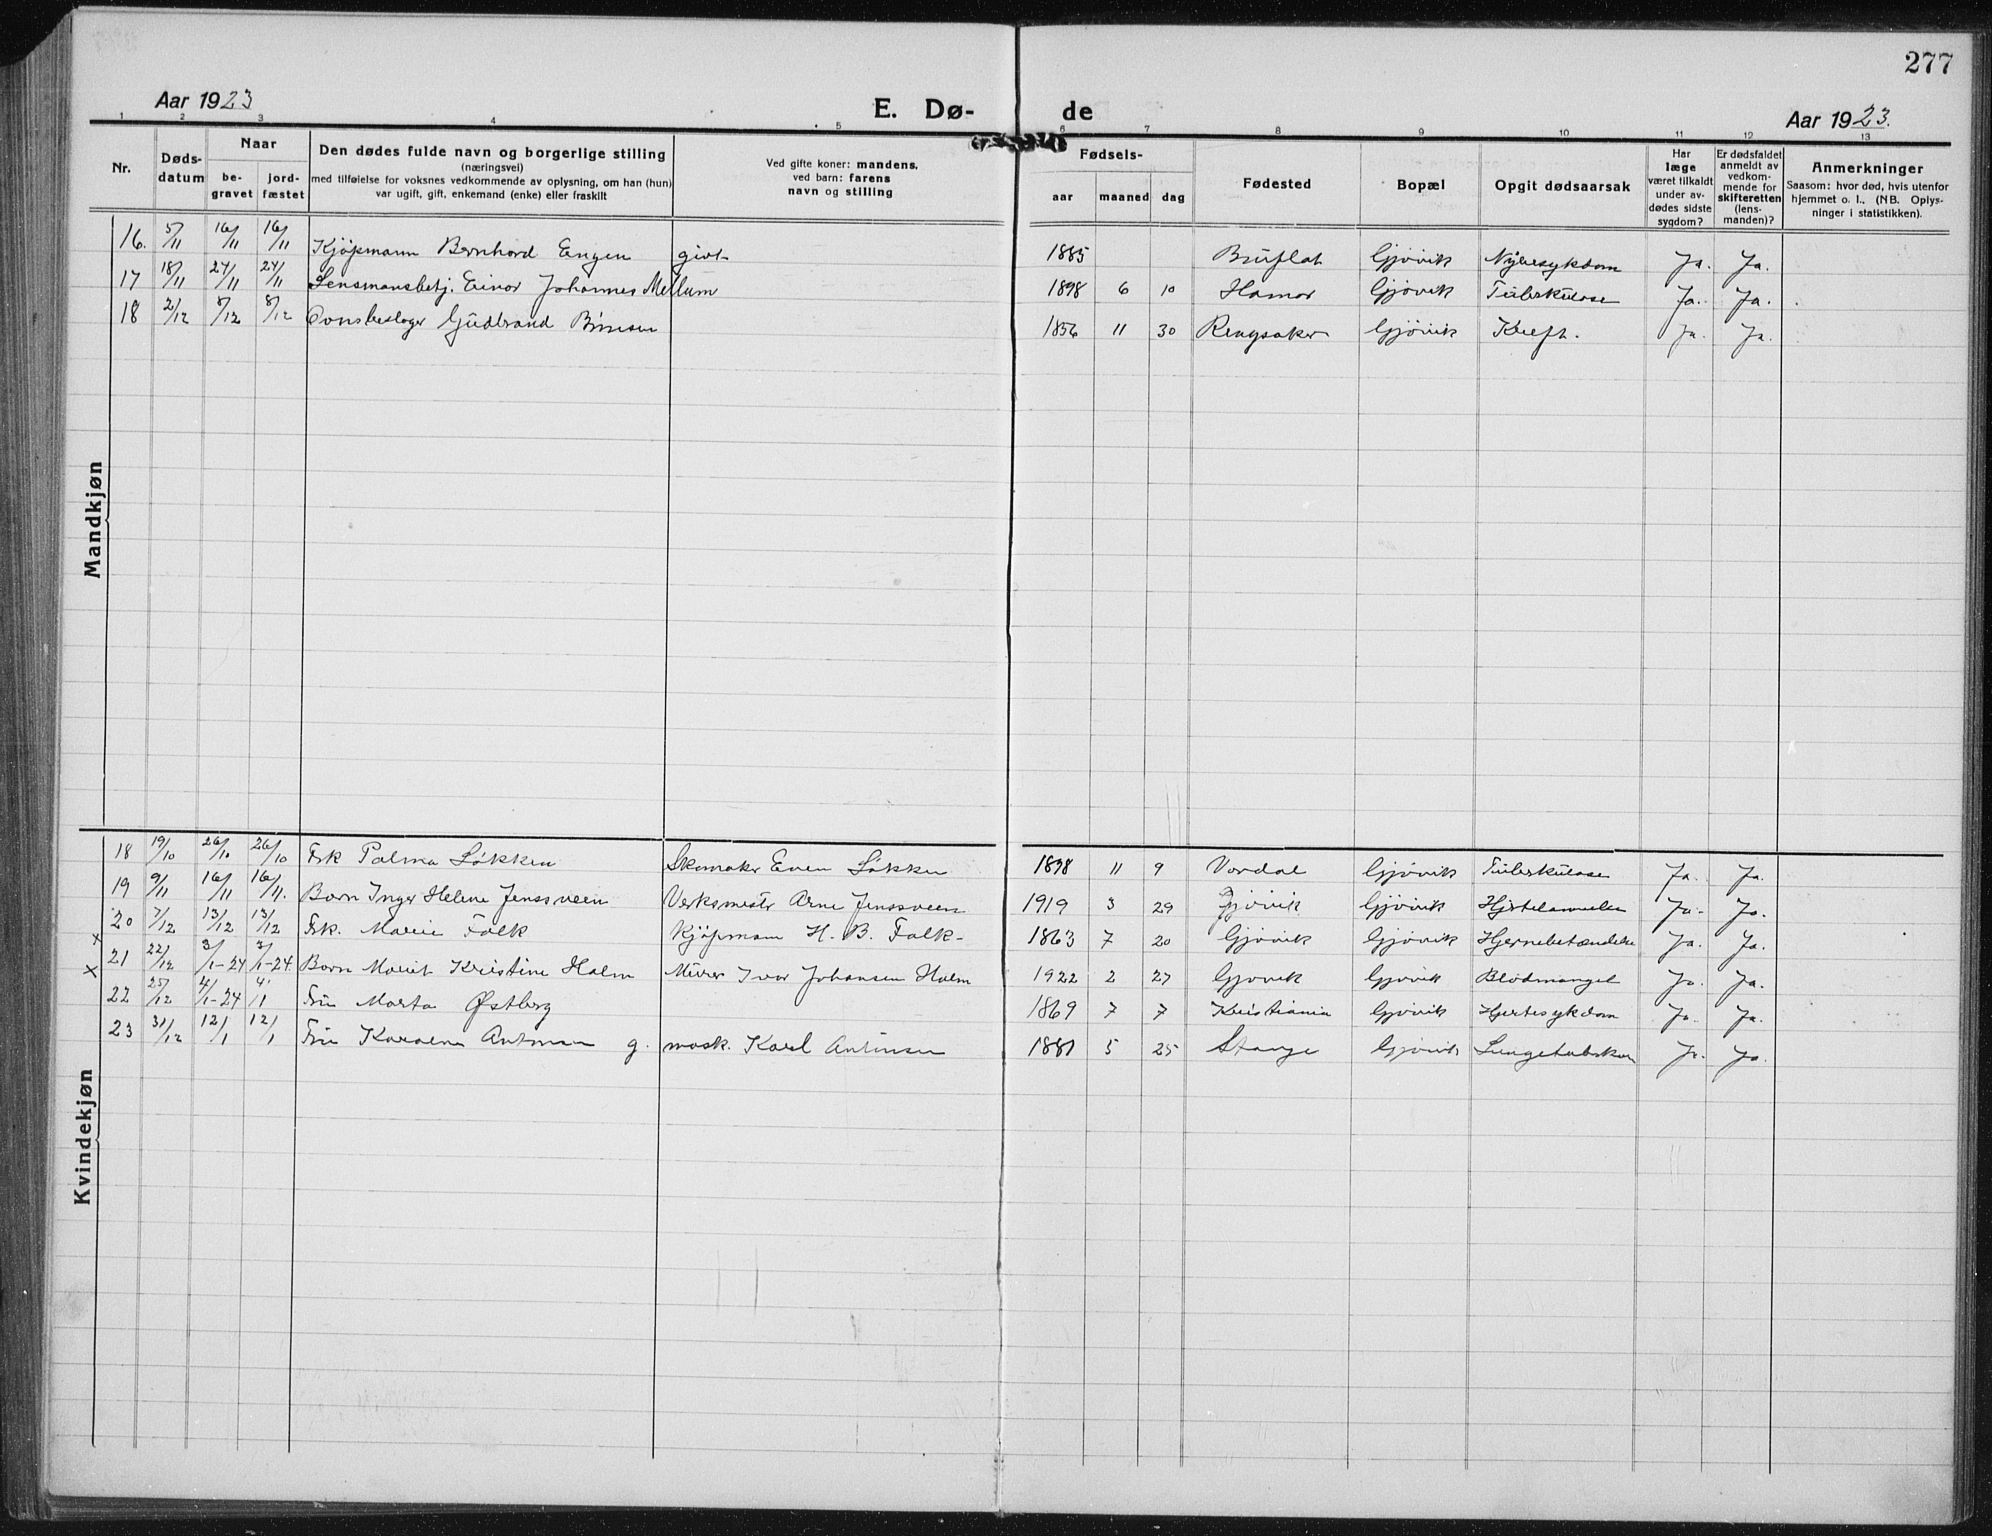 277
Aar 1923
E. Dø-
de
Aar 1923.
1 2 3 4 5 6 7 8 9 10 11 12 13
Nr.
Døds-
datum
Naar
be-
gravet
jord-
fæstet
Den dødes fulde navn og borgerlige stilling
(næringsvei)
med tilføielse for voksnes vedkommende av oplysning, om han (hun)
var ugift, gift, enkemand (enke) eller fraskilt
Ved gifte koner: mandens,
ved barn: farens
navn og stilling
Fødsels-
aar maaned dag
Fødested
Bopæl
Opgit dødsaarsak
Har
læge
været tilkaldt
under av-
dødes sidste
sygdom?
Er dødsfaldet
anmeldt av
vedkom-
mende for
skifteretten
(lens-
manden)?
Anmerkninger
Saasom: hvor død, hvis utenfor
hjemmet o. l., (NB. Oplys-
ninger i statistikken).
Mandkjøn
16. 5/11 16/11 16/11 Kjøpmann Bernhard Engen givt 1885 Bruflat Gjøvik Nyresykdom Ja. Ja.
17 18/11 24/11 24/11 Lensmansbetj. Einar Johannes Mellum 1898 6 10 Hamar Gjøvik Tuberkulose Ja. Ja.
18 2/12 8/12 8/12 Gudbrand 1856 11 30 Ringsaker Gjøvik Kreft. Ja. Ja.
Kvindekjøn
18 19/10 26/10 26/10 Frk Palma Løkken Skomaker Even Løkken 1898 11 9 Vardal Gjøvik Tuberkulose Ja. Ja.
19 9/11 16/11 16/11. Barn Inger Helene Jenssveen Verksmester Arne Jenssveen 1919 3 29 Gjøvik Gjøvik Ja. Ja.
20 7/12 13/12 13/12 Frk. Marie Falk Kjøpmann H. B. Falk- 1863 7 20 Gjøvik Gjøvik Hjernebetændelse Ja. Ja.
x 21 22/12 3/1-24 3/1-24. Barn Marit Kristine Holm Murer Ivar Johansen Holm 1922 2 27 Gjøvik Gjøvik Blodmangel Ja. Ja.
x 22 25/12 4/1-24 4/1 Fru Marta Østberg 1869 7 7 Kristiania Gjøvik Hjertesykdom Ja. Ja.
23 31/12 12/1 12/1 Fru Antonsen g. mask. Karl Antonsen 1881 5 25 Stange Gjøvik Ja. Ja.